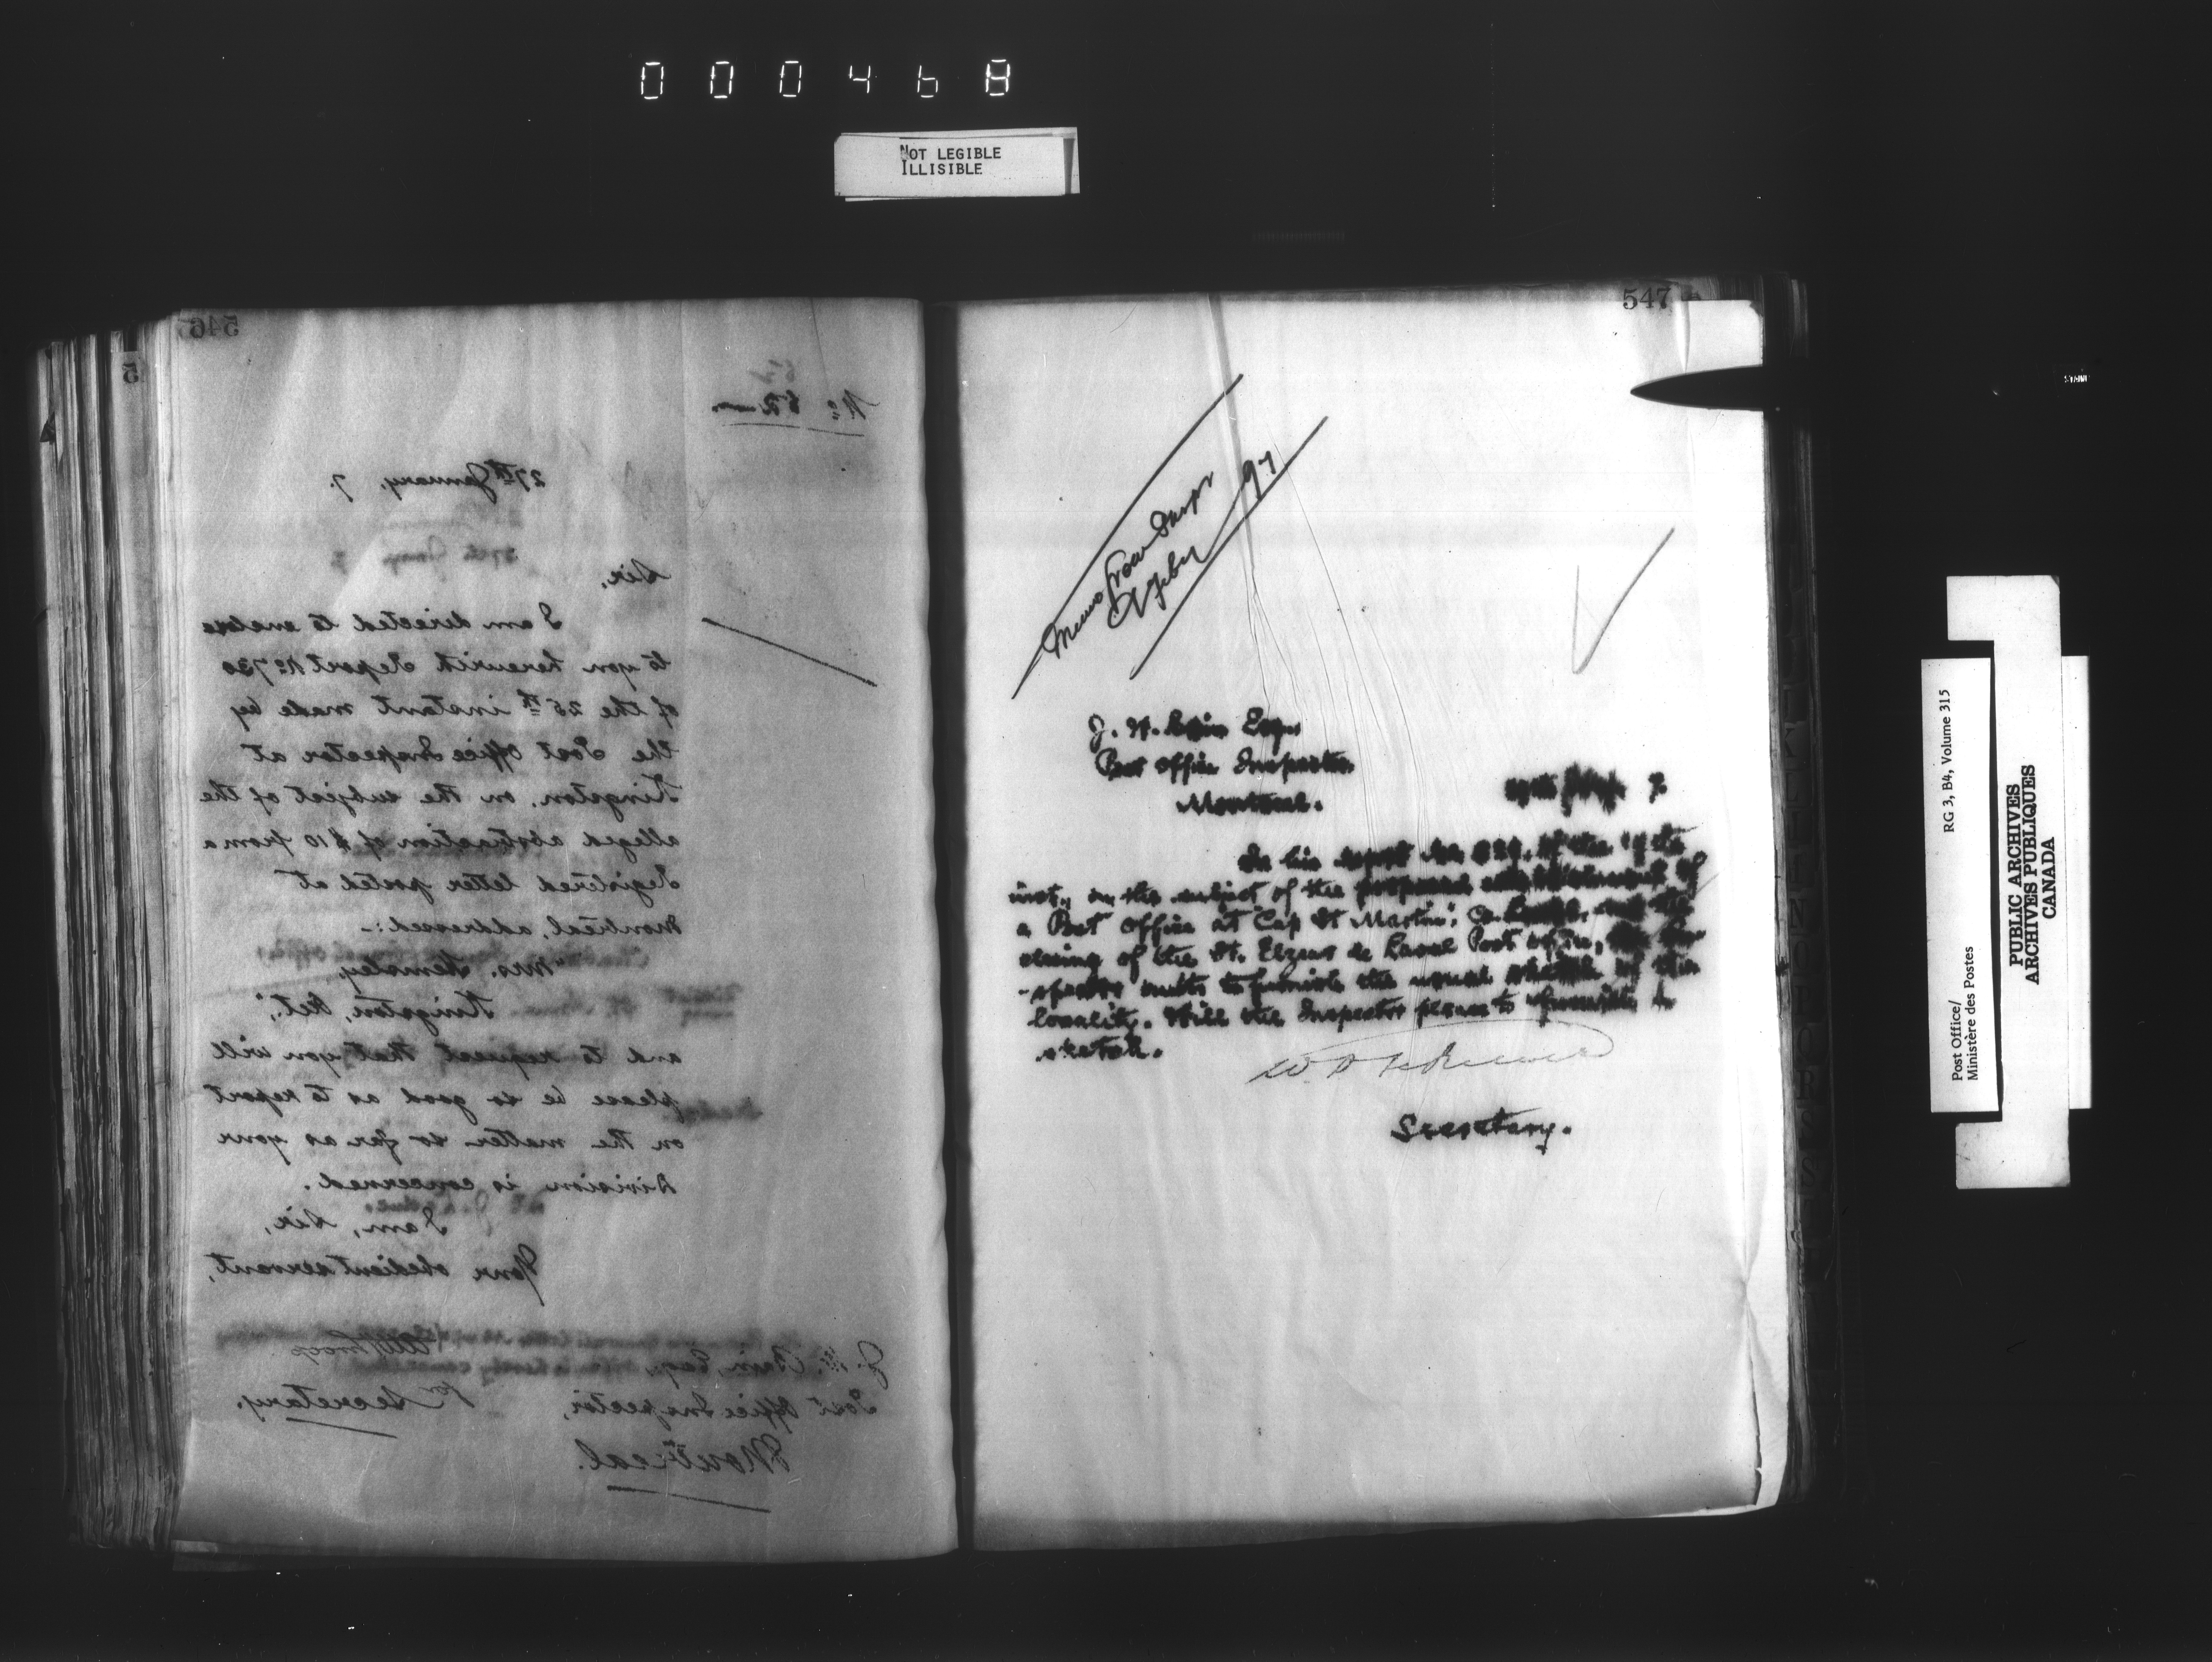 000468
NOT LEGIBLE
ILLISIBLE
546
No.
27th January, 7.
Sir,
I am directed to enclose
to you herewith Report No. 730
of the 25th instant made by
the Post Office Inspector at
Kingston, on the subject of the
alleged abstraction of $10 from a
Registered letter posted at
Montreal, addressed:-
"Mrs. Hemsley,
Kingston, Ont.",
and to request that you will
please be so good as to report
on the matter so far as your
Division is concerned.
I am, Sir,
Your obedient servant,
for Secretary.
J. W. Bain Esq.,
Post Office Inspector,
Montreal.
547
Memo from Inspr
Feby 97
J. W. Bain Esqr
Post Office Inspector
Montreal.
7
In his report No. of the
inst., on the subject of the proposed establishment of
a Post Office at "Cap St Martin", Co. and the
closing of the St. Elzear de Laval Post Office, the In-
-spector omits to furnish the usual sketch of the
locality. Will the Inspector please to furnish a
sketch.
Secretary.
RG 3, B4, Volume 315
Post Office/
Ministère des Postes
PUBLIC ARCHIVES
ARCHIVES PUBLIQUES
CANADA